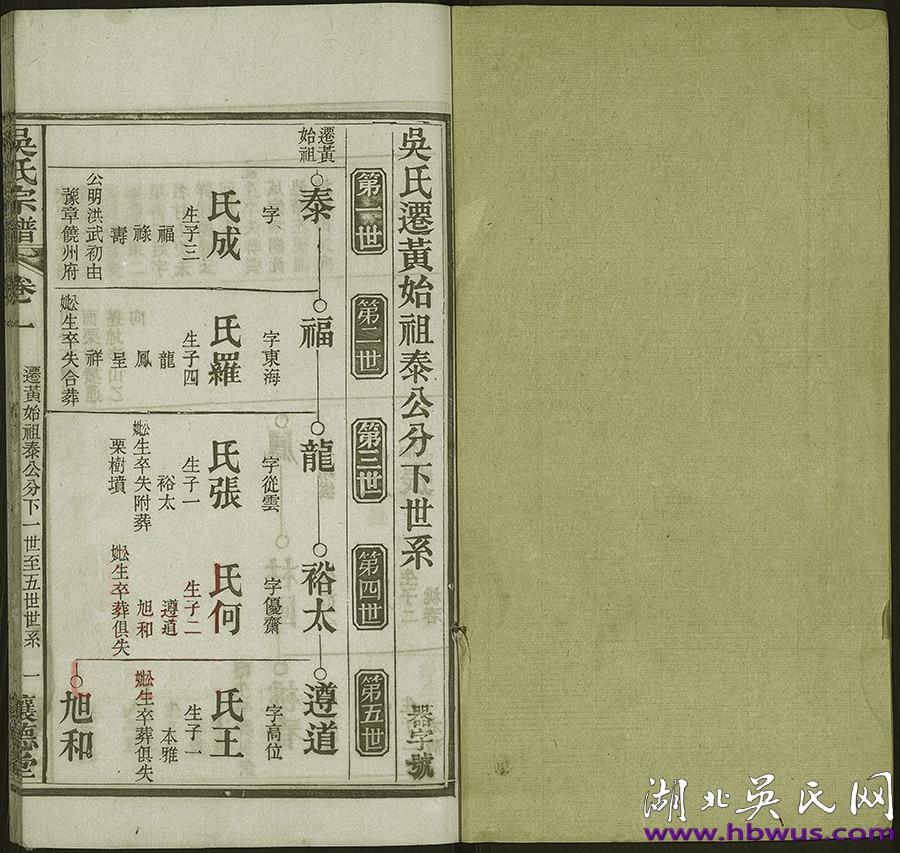 吳氏遷黃始祖泰公分下世系
器字號
第一世
第二世
第三世
第四世
第五世
遷黃
始祖
泰
字
氏成
生子三
福
祿
壽
公明洪武初由
豫章饒州府
福
字東海
氏羅
生子四
龍
鳳
呈
祥
妣生卒失合葬
龍
字從雲
氏張
生子一
裕太
妣生卒失附葬
栗樹墳
裕太
字優齋
氏何
生子二
遵道
旭和
妣生卒葬俱失
遵道
字高位
氏王
生子一
本雅
妣生卒葬俱失
旭和
吳氏宗譜
卷一
遷黃始祖泰公分下一世至五世世系
一
讓德堂
湖北吳氏网
www.hbwus.com